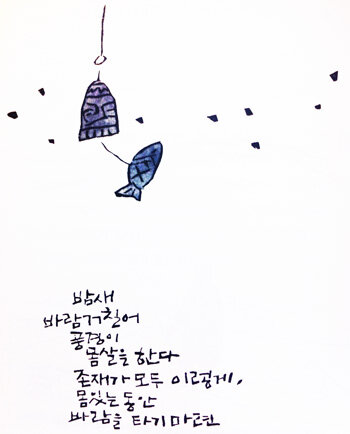 밤새
바람거칠어
풍경이
몸살을 한다
존재가 모두 이렇게,
몸있는 동안
바람을 타기 마련